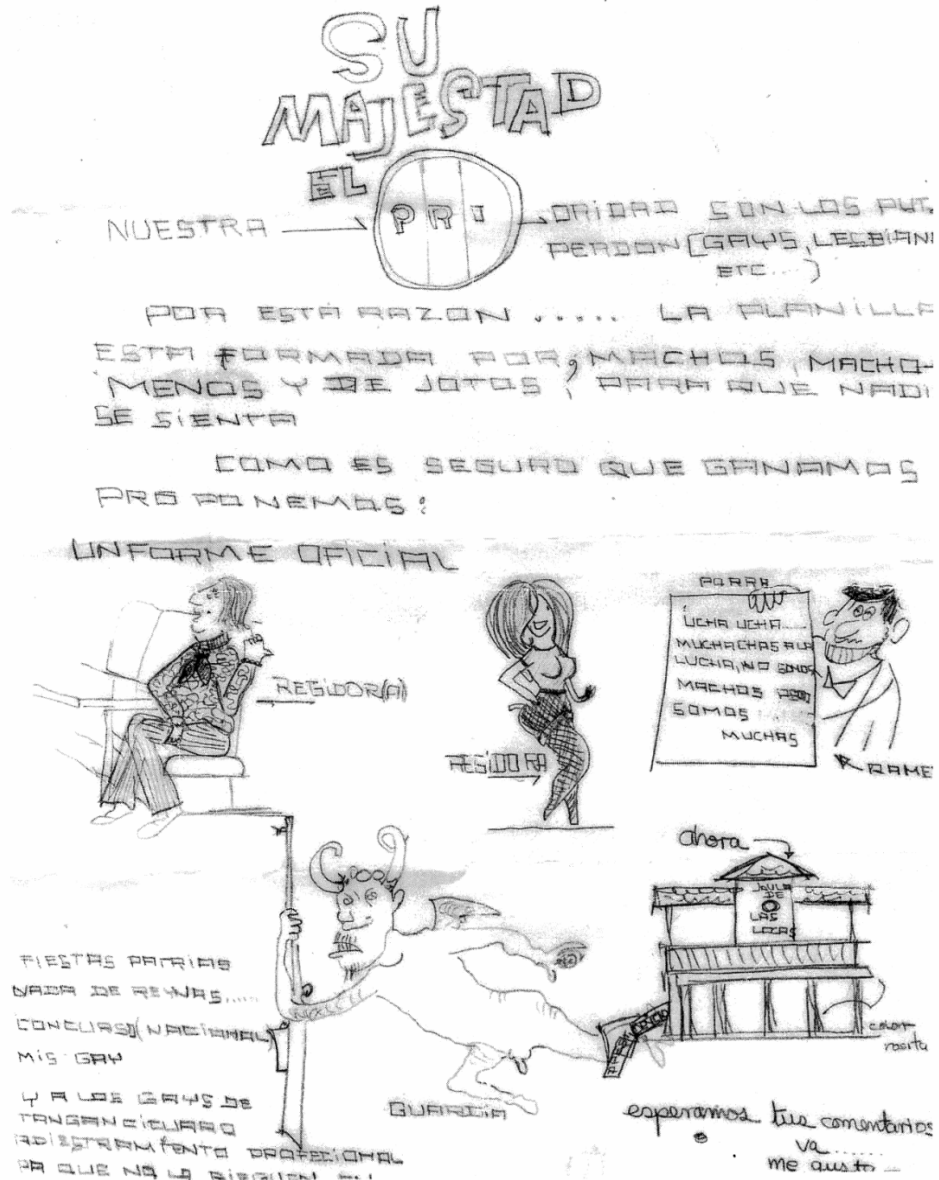 SU
MAJESTAD
EL PRI
NUESTRA ORIDAD SON LOS PUT
PERDON (GAYS, LESBIAN
ETC....)
POR ESTA RAZON ..... LA PLANILLA
ESTA FORMADA POR, MACHOS, MACHO-
MENOS Y DE JOTOS, PARA QUE NADI
SE SIENTA
COMO ES SEGURO QUE GANAMOS
PROPONEMOS:
UNFORME OFICIAL
REGIDOR(A)
REGIDORA
PORRA
UCHA UCHA.....
MUCHACHAS A LA
LUCHA, NO SOMOS
MACHOS PERO
SOMOS
MUCHAS
RAME
ahora
JAULA
DE
LAS
LOCAS
color
rosita
FIESTAS PATRIAS
NADA DE REYNAS.....
CONCURSO (NACIONAL)
MIS GAY
Y A LOS GAYS DE
TANGANCICUARO
ADIESTRAMIENTO PROFECIONAL
PA QUE NO LA
GUARDIA
esperamos tus comentarios
va......
me gusto